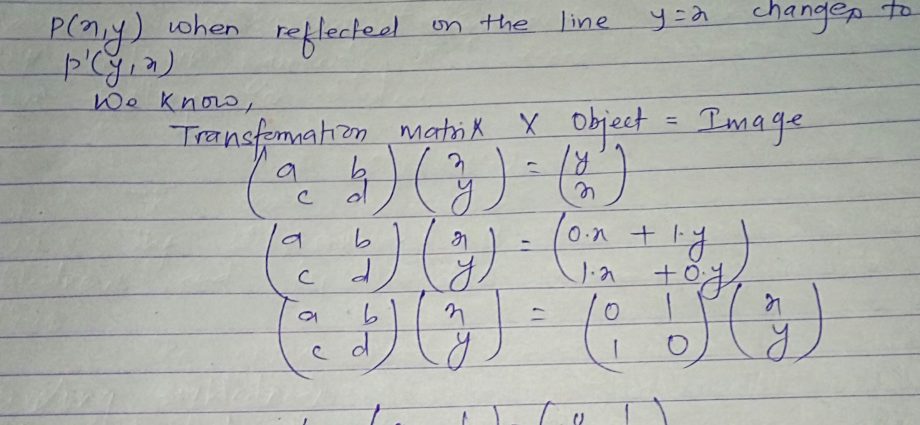 P(x,y) when reflected on the line y=x changes to
P'(y,x)
We know,
Transformation matrix X Object = Image
(a b
c d) (x
y) = (y
x)
(a b
c d) (x
y) = (0.x + 1.y
1.x + 0.y)
(a b
c d) (x
y) = (0 1
1 0) (x
y)